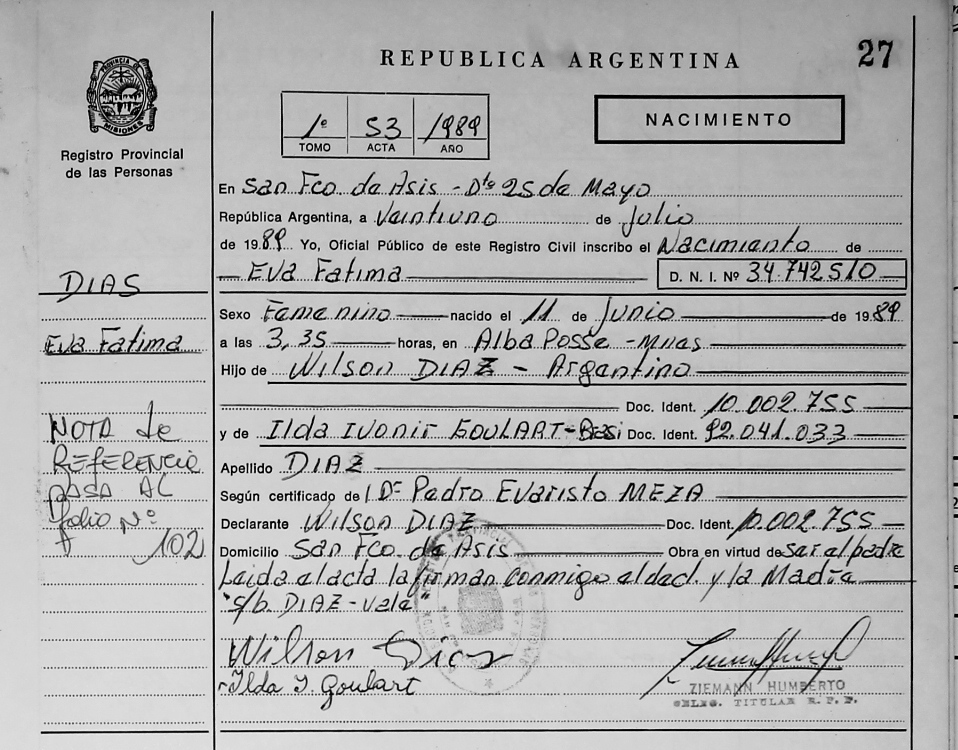 REPUBLICA ARGENTINA
27
PROVINCIA DE
MISIONES
Registro Provincial
de las Personas
1º 53 1989
TOMO ACTA AÑO
NACIMIENTO
En San Fco. de Asis - Dto 25 de Mayo
República Argentina, a Veintiuno de Julio
de 1989 Yo, Oficial Público de este Registro Civil inscribo el Nacimiento de
Eva Fatima D. N. I. Nº 34.742510
DIAS
Eva Fatima
NOTA de
REFERENCIA
PASA AL
folio Nº
102
Sexo Femenino nacido el 11 de Junio de 1989
a las 3,35 horas, en Alba Posse - Mnes
Hijo de Wilson DIAZ - Argentino
Doc. Ident. 10.002.755
y de Ilda Ivonir GOULART - Doc. Ident. 92.041.033
Apellido DIAZ
Según certificado de Dr Pedro Evaristo MEZA
Declarante Wilson DIAZ Doc. Ident. 10.002.755
Domicilio San Fco. de Asis Obra en virtud de ser el padre
Leida el acta la firman conmigo el decl. y la Madre
"s/b. DIAZ - Vale"
Wilson Dias
Ilda I. Goulart
ZIEMANN HUMBERTO
DELEG. TITULAR R. P. P.